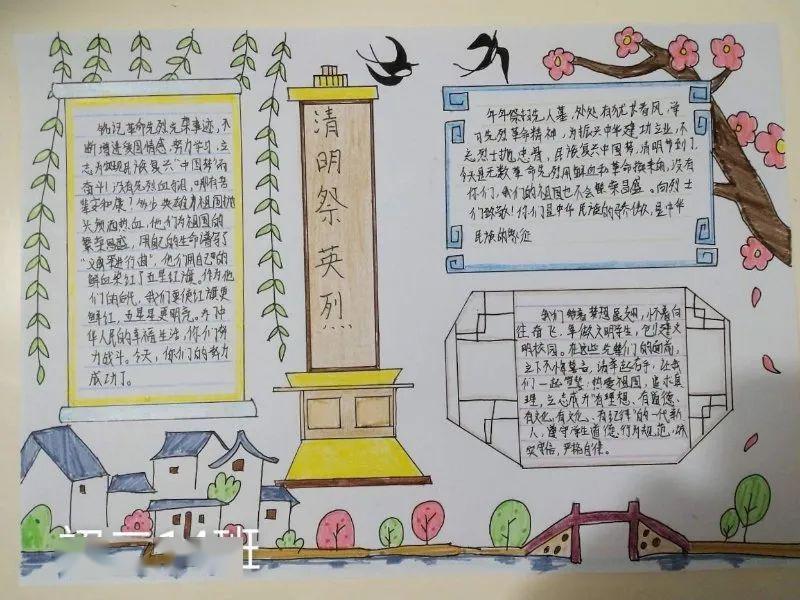 清明祭英烈
铭记革命先烈光荣事迹,不
断增进爱国情感,努力学习,立
志为实现民族复兴“中国梦”而
奋斗!没有先烈血的
繁荣和康?多少英雄为祖国抛
头颅洒热血,他们为祖国的
繁荣昌盛,用自己的生命谱写了
“义勇军进行曲”,他们用自己的
鲜血染红了五星红旗。作为他
们的后代,我们要使红旗更
鲜红,五星星更明亮。为了中
华人民的幸福生活,你们努
力战斗。今天,你们的努力
成功了。
年年祭扫先人墓,处处有犹长春风,学
习先烈革命精神,为振兴中华建功立业,不
忘烈士抛忠骨,民族复兴中国梦,清明节到了,
今天是无数革命先烈用鲜血和革命换来的,没有
你们,我们的祖国也不会繁荣昌盛。向烈士
们致敬!你们是中华民族的骄傲,是中华
民族的象征
我们带着梦想展翅,怀着向
往奋飞,争做文明学生,创建文
明校园。在这些先辈们的面前,
立下不悔誓言,请举起右手,让我
们一起宣誓,热爱祖国,追求真
理,立志成为“有理想、有道德、
有文化、有文化、有纪律”的一代新
人,遵守学生道德,行为规范,诚
实守信,严格自律。
班